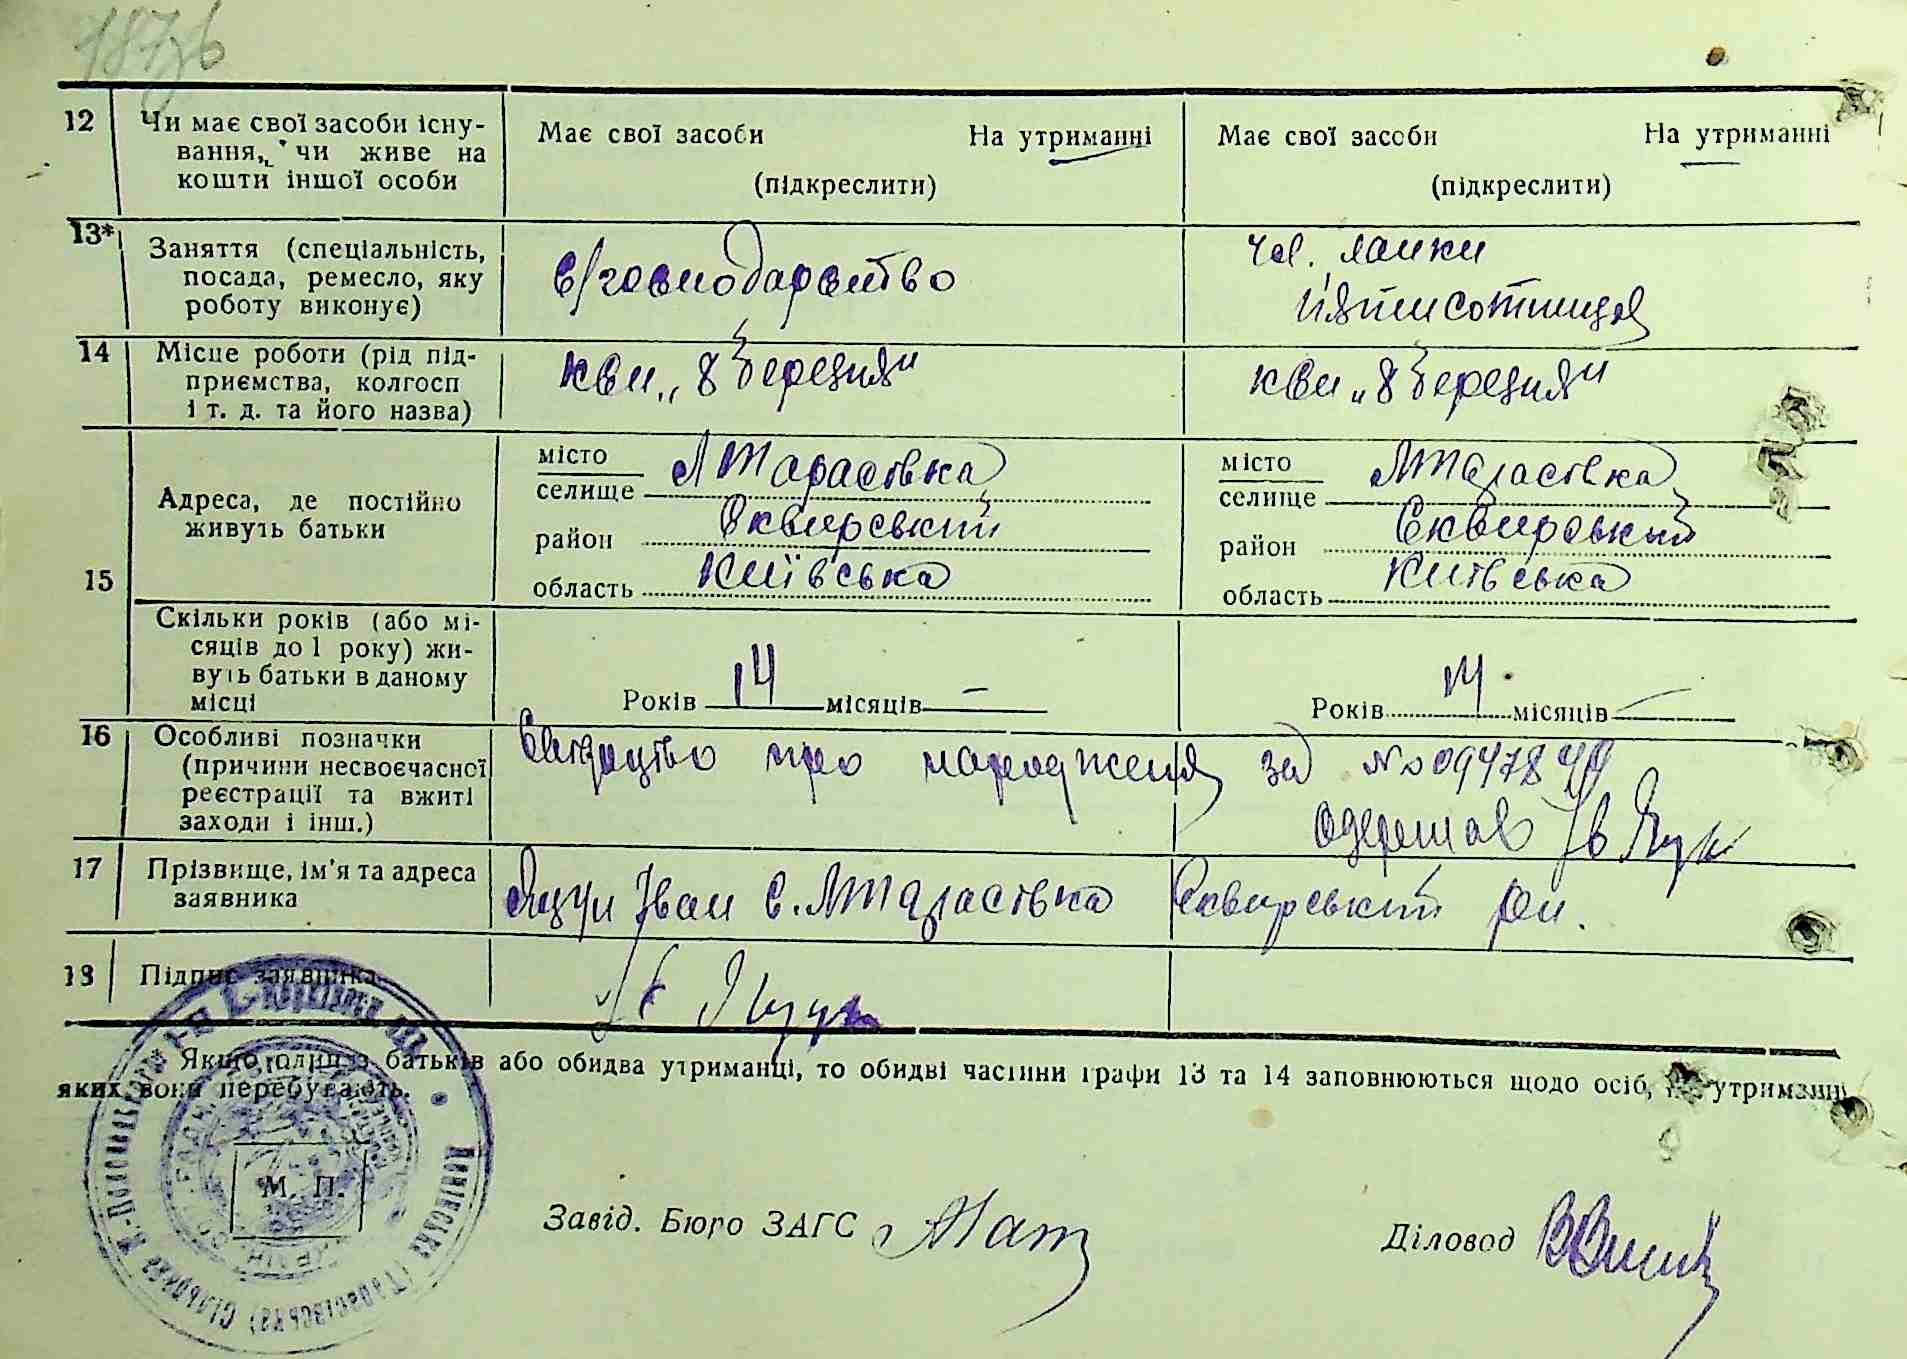 12 Чи має свої засоби існу-
вання, чи живе на
кошти іншої особи
Має свої засоби На утриманні
(підкреслити)
Має свої засоби На утриманні
(підкреслити)
13* Заняття (спеціальність,
посада, ремесло, яку
роботу виконує)
с/господарство
чл. ланки
п'ятисотниця
14 Місце роботи (рід під-
приємства, колгосп
і т. д. та його назва)
"8 Березня"
"8 Березня"
15 Адреса, де постійно
живуть батьки
місто
селище МТарасівка
район Сквирський
область Київська
місто
селище МТарасівка
район Сквирський
область Київська
Скільки років (або мі-
сяців до 1 року) жи-
вуть батьки в даному
місці
Років 14 місяців –
Років 14 місяців –
16 Особливі позначки
(причини несвоєчасної
реєстрації та вжиті
заходи і інш.)
Свідоцтво про народження за №
одержав Ів
17 Прізвище, ім'я та адреса
заявника
Іван с. МТарасівка Сквирський рн.
18 Підпис заявника
Якщо один з батьків або обидва утриманці, то обидві частини графи 13 та 14 заповнюються щодо осіб, на утриманні
яких вони перебувають.
М. П.
Завід. Бюро ЗАГС
Діловод